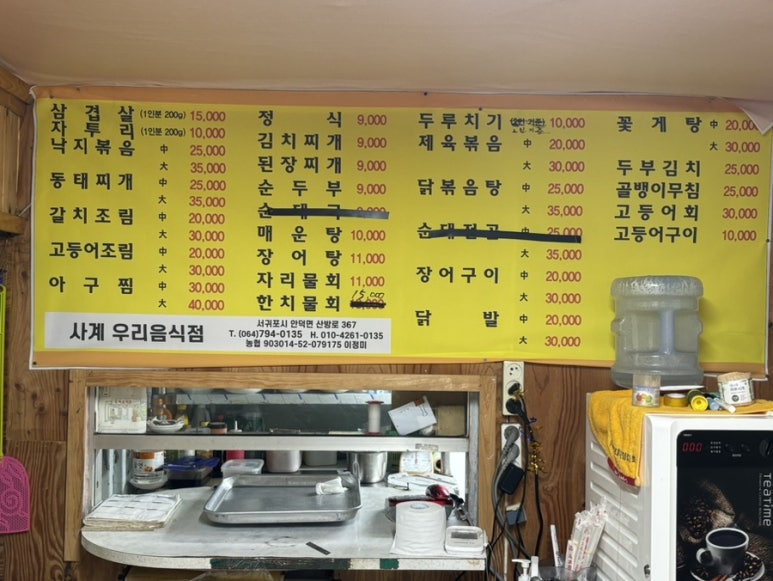 삼겹살 (1인분 200g) 15,000
자투리 (1인분 200g) 10,000
낙지볶음 中 25,000
大 35,000
동태찌개 中 25,000
大 35,000
갈치조림 中 20,000
大 30,000
고등어조림 中 20,000
大 30,000
아구찜 中 30,000
大 40,000
정식 9,000
김치찌개 9,000
된장찌개 9,000
순두부 9,000
순대국 9,000
매운탕 10,000
장어탕 11,000
자리물회 11,000
한치물회 15,000
두루치기 10,000
제육볶음 中 20,000
大 30,000
닭볶음탕 中 25,000
大 35,000
순대전골 中 25,000
大 35,000
장어구이 中 20,000
大 30,000
닭발 中 20,000
大 30,000
꽃게탕 中 20,000
大 30,000
두부김치 25,000
골뱅이무침 25,000
고등어회 30,000
고등어구이 10,000
사계 우리음식점
서귀포시 안덕면 산방로 367
T. (064)794-0135 H. 010-4261-0135
농협 903014-52-079175 이정미
TEATIME